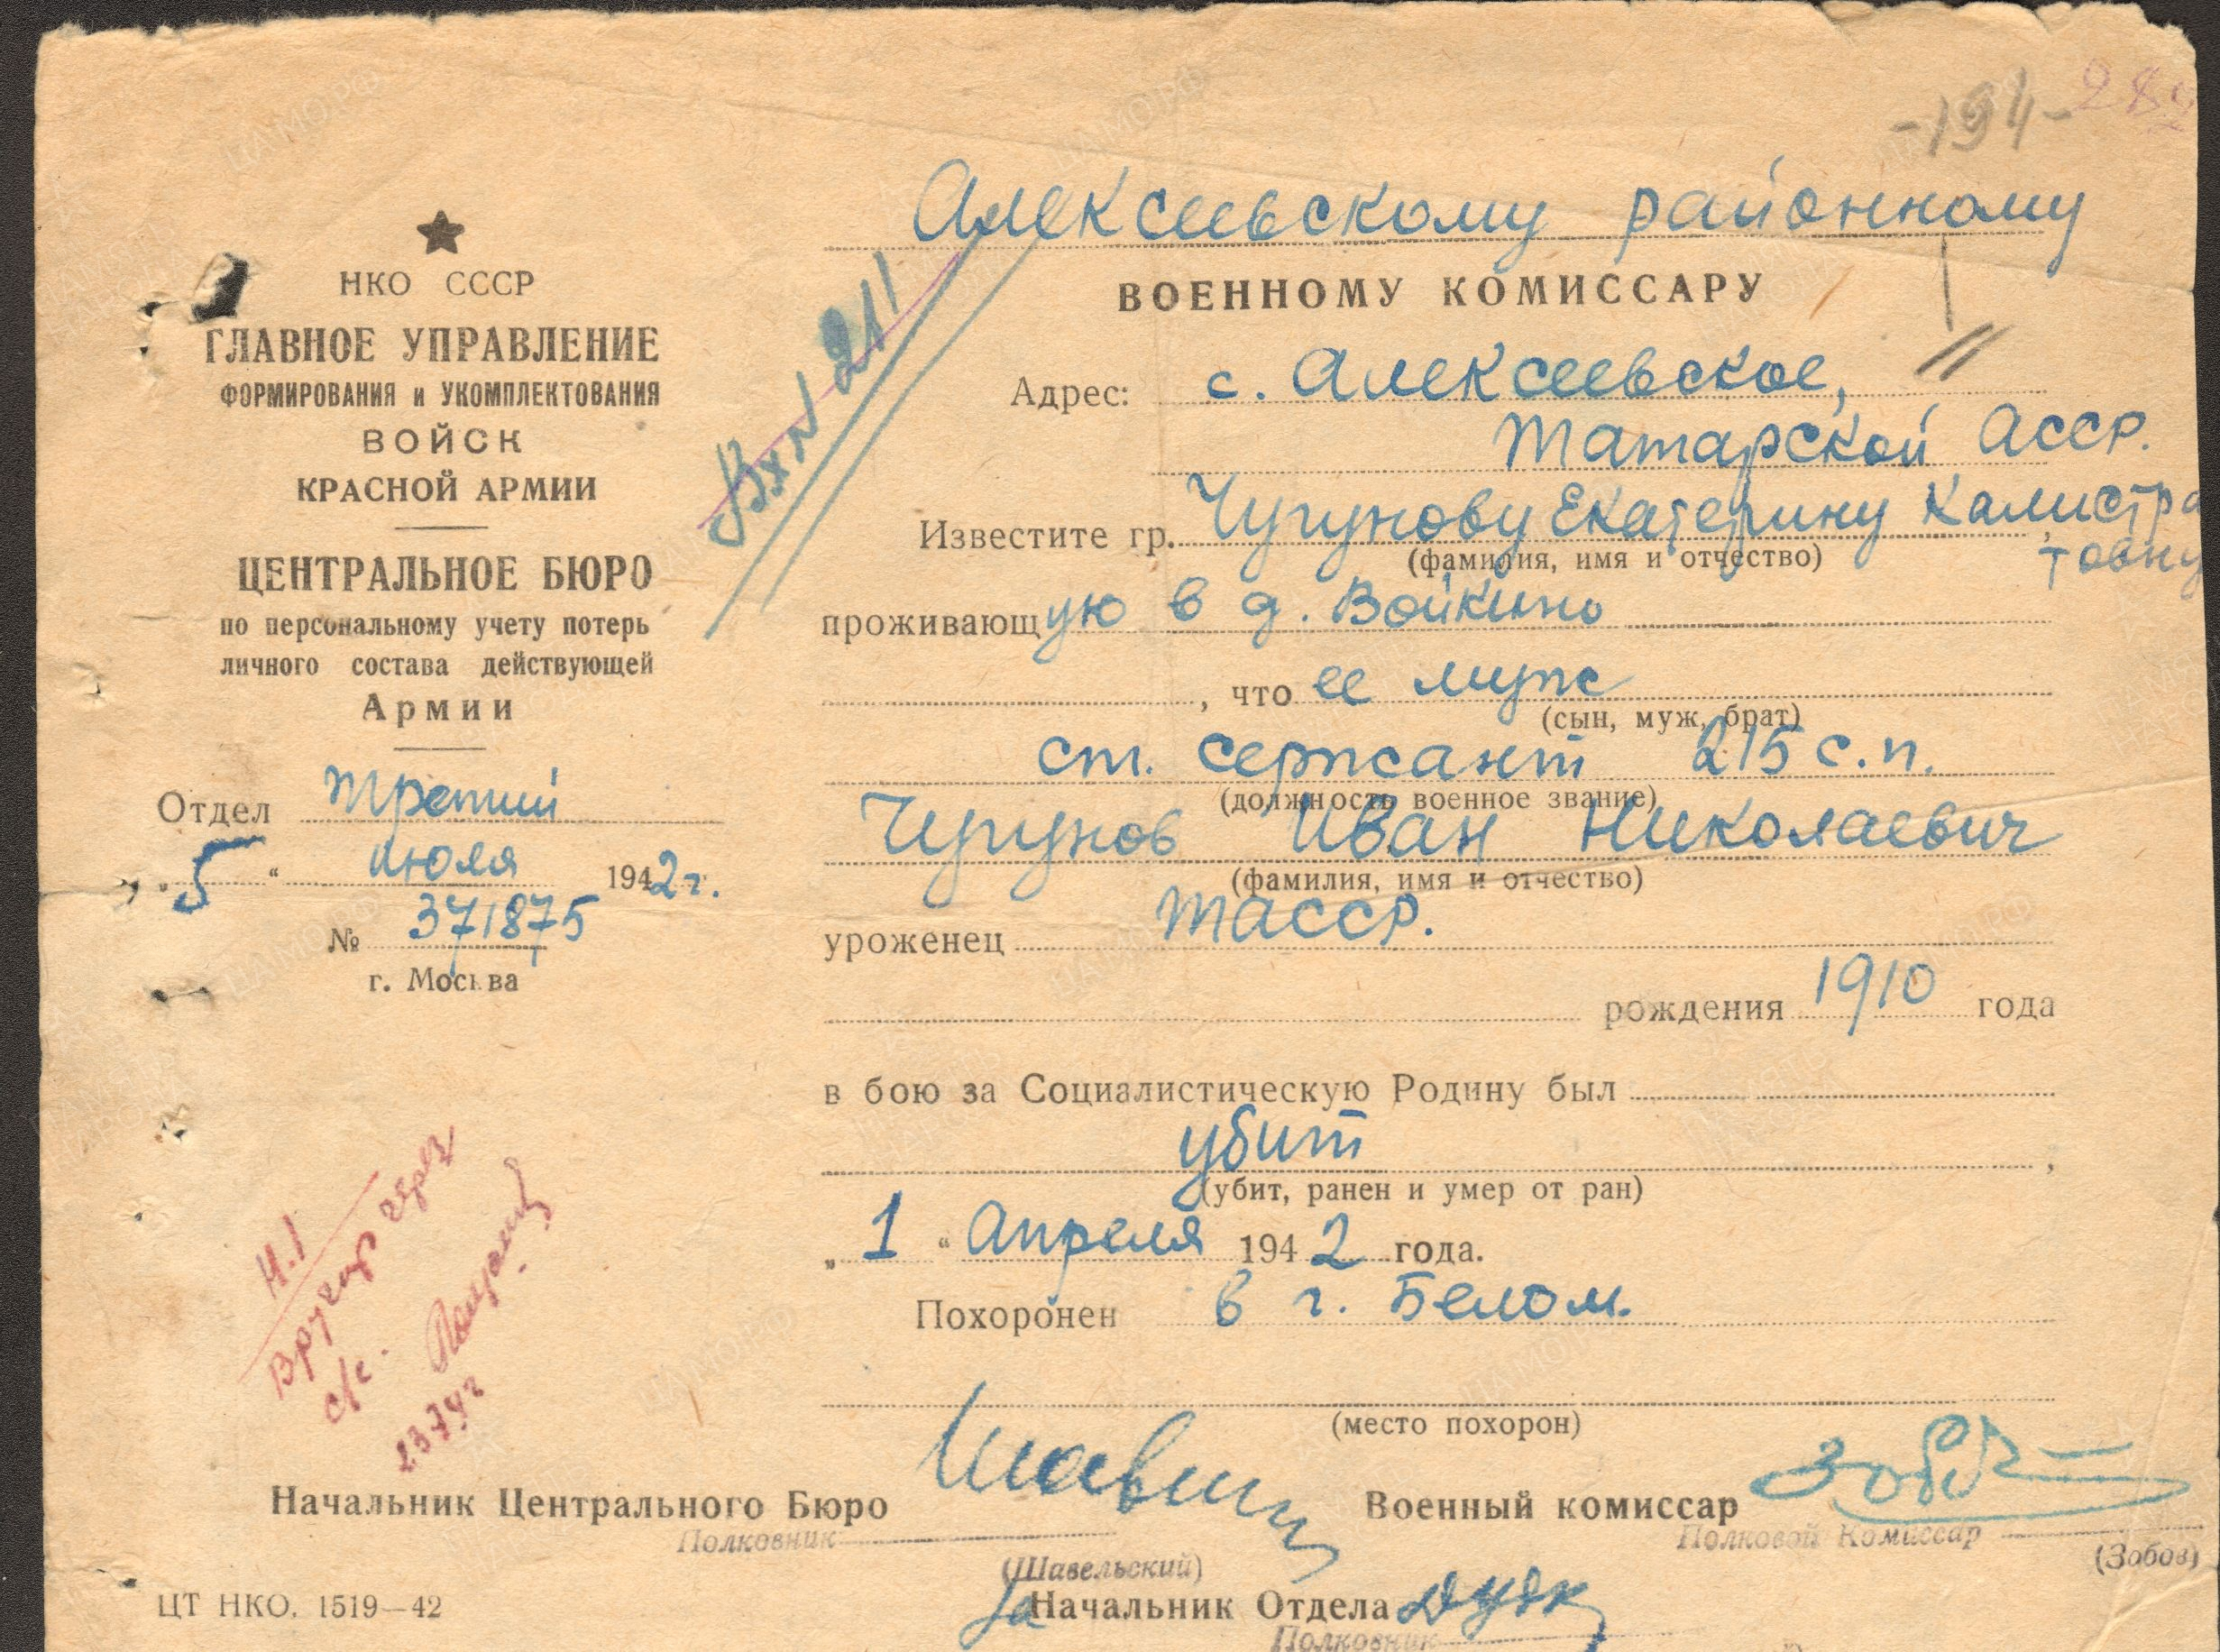 -194-
Алексеевскому районному
ВОЕННОМУ КОМИССАРУ
Адрес: с. Алексеевское,
Татарской АССР.
Известите гр. Чугунову Екатерину Калистра
товну
(фамилия, имя и отчество)
проживающую в д. Войкино
, что ее муж
(сын, муж, брат)
ст. сержант 215 с.п.
(должность военное звание)
Чугунов Иван Николаевич
(фамилия, имя и отчество)
уроженец ТАССР.
рождения 1910 года
в бою за Социалистическую Родину был
убит,
(убит, ранен и умер от ран)
„1“ Апреля 1942 года.
Похоронен в г. Белом.
(место похорон)
НКО СССР
ГЛАВНОЕ УПРАВЛЕНИЕ
ФОРМИРОВАНИЯ и УКОМПЛЕКТОВАНИЯ
ВОЙСК
КРАСНОЙ АРМИИ
ЦЕНТРАЛЬНОЕ БЮРО
по персональному учету потерь
личного состава действующей
Армии
Отдел Третий
„5“ июля 1942 г.
№ 371875
г. Москва
Вх N 211
Н.1
Вручир через
с/с.
Начальник Центрального Бюро
Полковник
(Шавельский)
Военный комиссар
Полковой Комиссар
(Зобов)
За Начальник Отдела
Полковник
ЦТ НКО. 1519—42